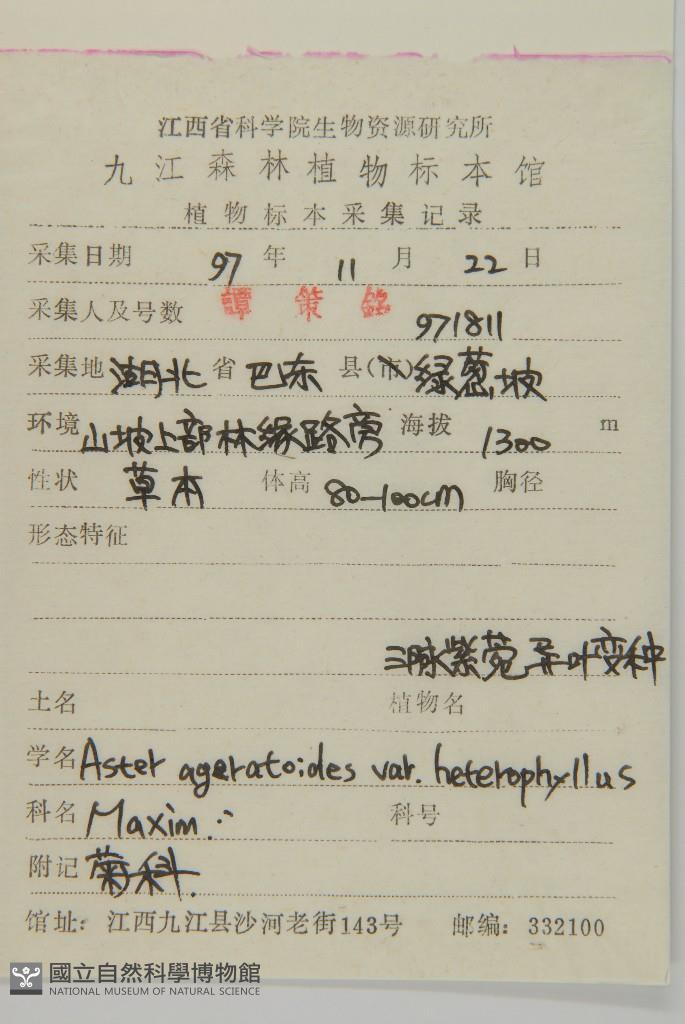 江西省科学院生物资源研究所
九江森林植物标本馆
植物标本采集记录
采集日期 97 年 11 月 22 日
采集人及号数 譚策銘 971811
采集地 湖北 省 巴东 县(市) 绿葱坡
环境 山坡上部林缘路旁 海拔 1300 m
性状 草本 体高 80-100cm 胸径
形态特征
三脉紫菀异叶变种
土名 植物名
学名 Aster ageratoides var. heterophyllus
科名 Maxim. 科号
附记 菊科.
馆址: 江西九江县沙河老街143号 邮编: 332100
國立自然科學博物館
NATIONAL MUSEUM OF NATURAL SCIENCE